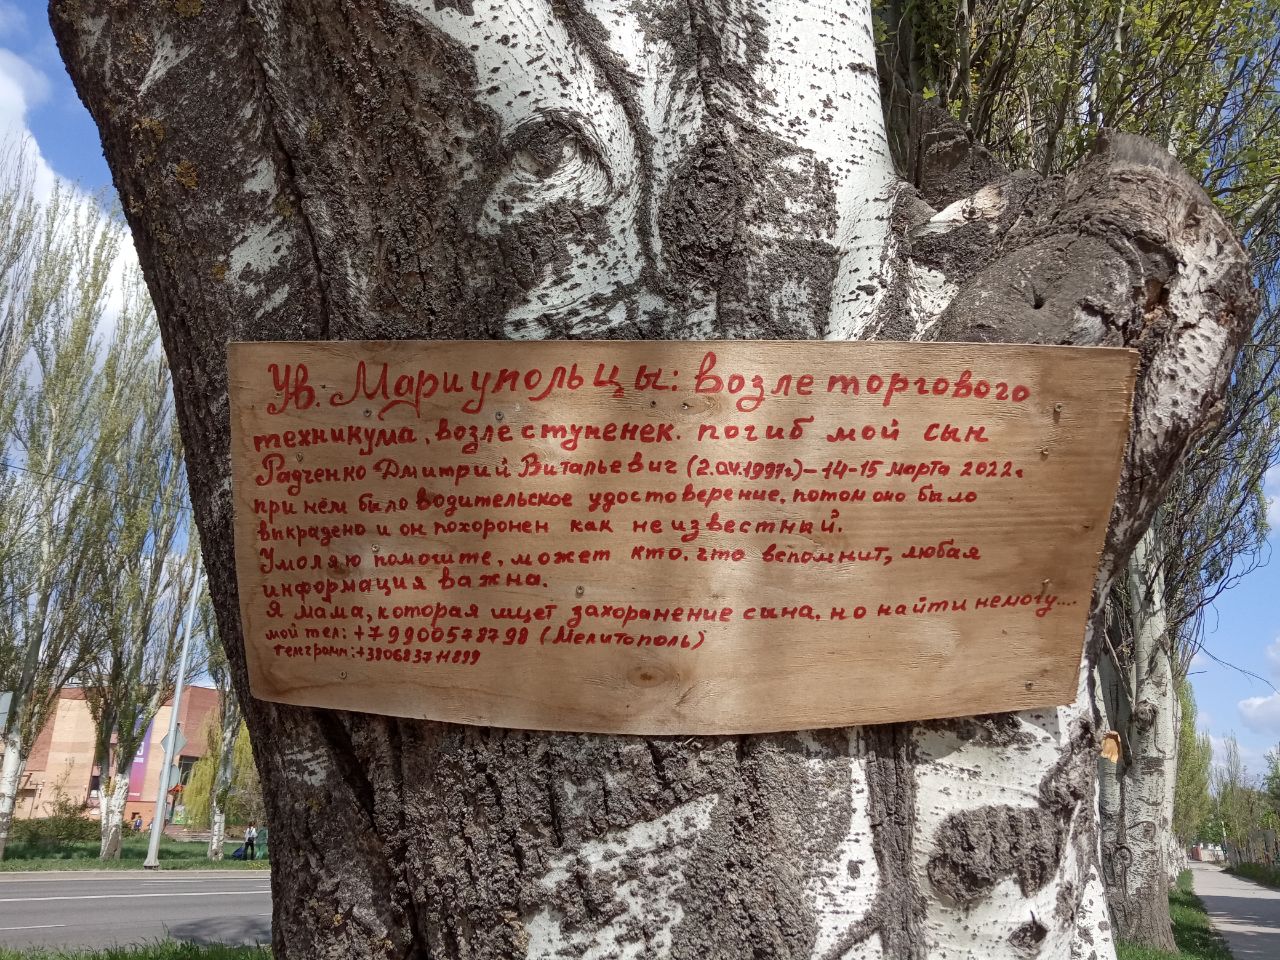 Ув. Мариупольцы: возле торгового
техникума, возле ступенек. погиб мой сын
Радченко Дмитрий Витальевич (2.04.1997г)-14-15 марта 2022г.
при нём было водительское удостоверение, потом оно было
выкрадено и он похоронен как неизвестный.
Умоляю помогите, может кто. что вспомнит, любая
информация важна.
Я мама, которая ищет захоранение сына, но найти немогу....
мой тел: +79900578798 (Мелитополь)
телеграмм:+380683711899